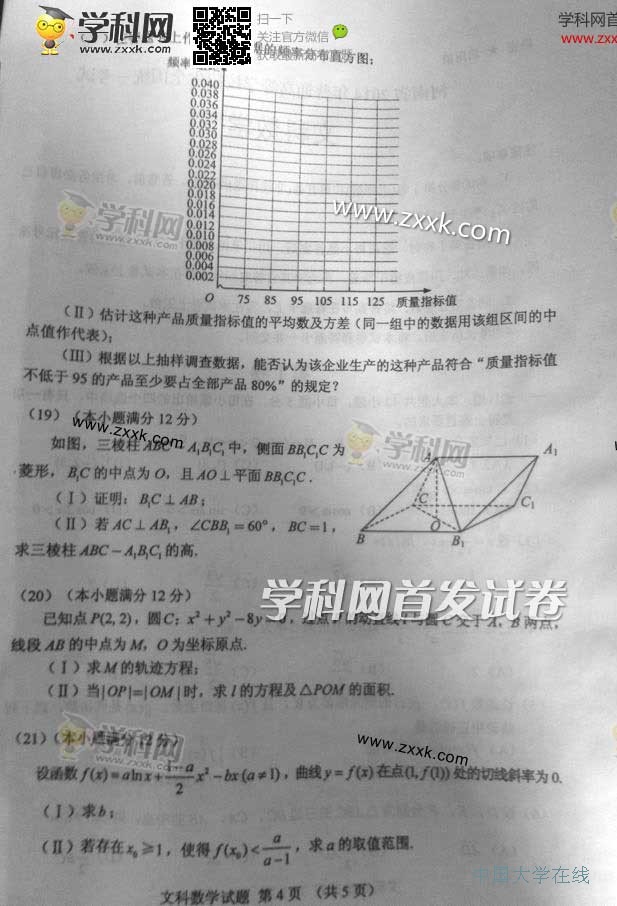 学科网 www.zxxk.com
扫一下
关注官方微信
获取最新
学科网首
www.zx
的频率分布直方图：
频率
0.040
0.038
0.036
0.034
0.032
0.030
0.028
0.026
0.024
0.022
0.020
0.018
0.016
0.014
0.012
0.010
0.008
0.006
0.004
0.002
O 75 85 95 105 115 125 质量指标值
学科网 www.zxxk.com
www.zxxk.com
（Ⅱ）估计这种产品质量指标值的平均数及方差（同一组中的数据用该组区间的中
点值作代表）；
（Ⅲ）根据以上抽样调查数据，能否认为该企业生产的这种产品符合“质量指标值
不低于 95 的产品至少要占全部产品 80%”的规定？
(19)（本小题满分 12 分）
www.zxxk.com
如图，三棱柱 ABC－A₁B₁C₁ 中，侧面 BB₁C₁C 为
菱形， B₁C 的中点为 O，且 AO⊥平面 BB₁C₁C．
（Ⅰ）证明：B₁C⊥AB；
（Ⅱ）若 AC⊥AB₁，∠CBB₁=60°，BC=1，
求三棱柱 ABC－A₁B₁C₁ 的高.
学科网 www.zxxk.com
A A₁
C C₁
O
B B₁
(20)（本小题满分 12 分）
学科网首发试卷
已知点 P(2, 2)，圆 C: x²+y²-8y 交于 A，B 两点，
线段 AB 的中点为 M，O 为坐标原点.
（Ⅰ）求 M 的轨迹方程；
（Ⅱ）当|OP|=|OM|时，求 l 的方程及△POM 的面积.
(21)（本小题满分 12 分）
学科网 www.zxxk.com
www.zxxk.com
设函数 f(x)=a ln x+(1-a)/2 x²-bx(a≠1)，曲线 y=f(x)在点(1, f(1))处的切线斜率为 0.
（Ⅰ）求 b；
（Ⅱ）若存在 x₀≥1，使得 f(x₀)<a/(a-1)，求 a 的取值范围.
文科数学试题 第 4 页 （共 5 页）
中国大学在线